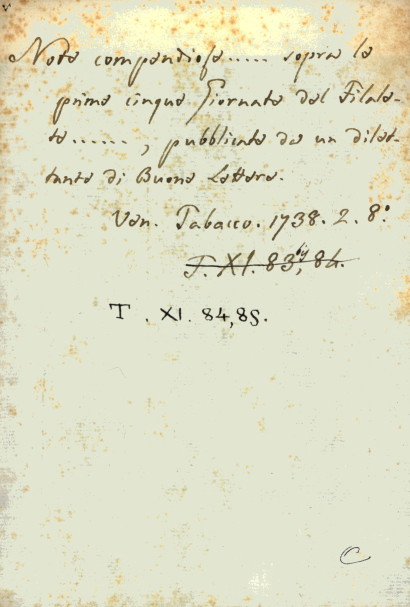 Note compendiose..... sopra le
prime cinque Giornate del Filale-
te......, pubblicate da un dilet-
tante di Buone Lettere.
Ven. Tabacco. 1738. 2. 8.°
T. XI. 83, 84.
T. XI. 84, 85.
C